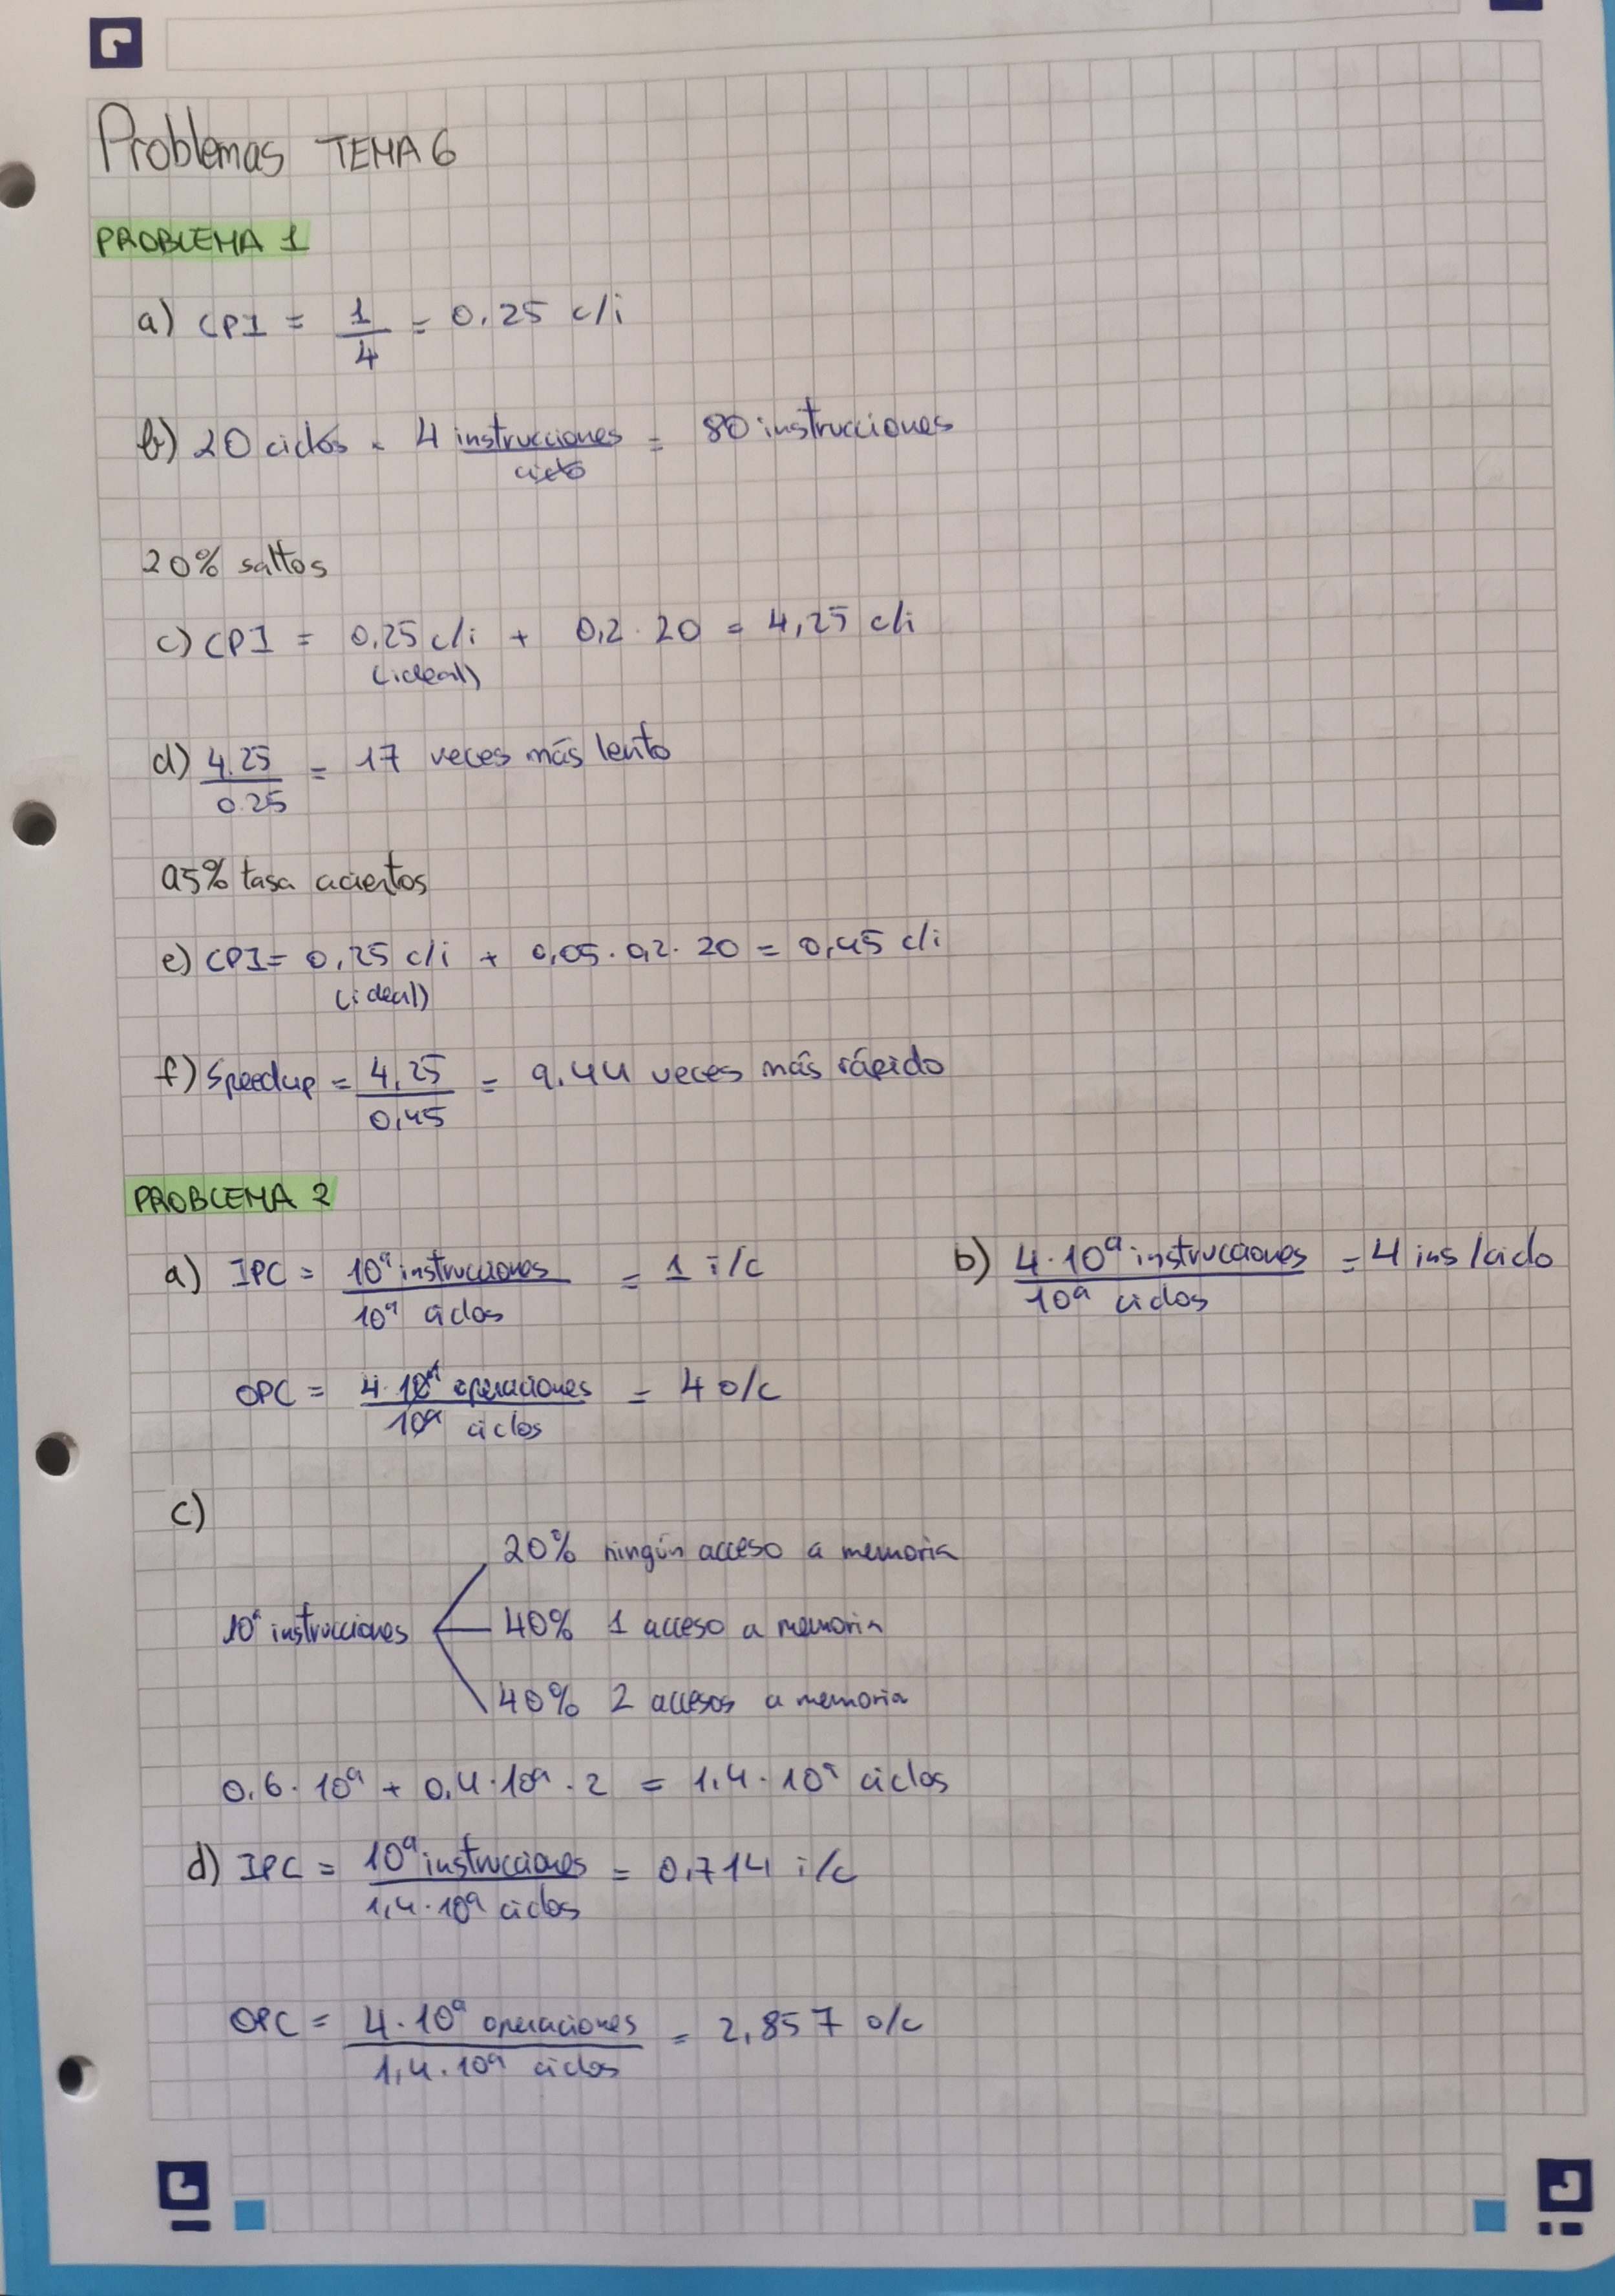 Problemas TEMA 6
PROBLEMA 1
a) CPI = 1/4 = 0.25 c/i
b) 20 ciclos · 4 instrucciones/ciclo = 80 instrucciones
20% saltos
c) CPI = 0,25 c/i + 0,2 · 20 = 4,25 c/i
(ideal)
d) 4.25/0.25 = 17 veces más lento
95% tasa aciertos
e) CPI = 0,25 c/i + 0,05 · 0,2 · 20 = 0,45 c/i
(ideal)
f) Speedup = 4,25/0,45 = 9.44 veces más rápido
PROBLEMA 2
a) IPC = 10⁹ instrucciones/10⁹ ciclos = 1 i/c
b) 4 · 10⁹ instrucciones/10⁹ ciclos = 4 ins/ciclo
OPC = 4 · 10⁹ operaciones/10⁹ ciclos = 4 o/c
c)
20% ningún acceso a memoria
10⁹ instrucciones 40% 1 acceso a memoria
40% 2 accesos a memoria
0.6 · 10⁹ + 0,4 · 10⁹ · 2 = 1.4 · 10⁹ ciclos
d) IPC = 10⁹ instrucciones/1,4 · 10⁹ ciclos = 0,714 i/c
OPC = 4 · 10⁹ operaciones/1,4 · 10⁹ ciclos = 2,857 o/c